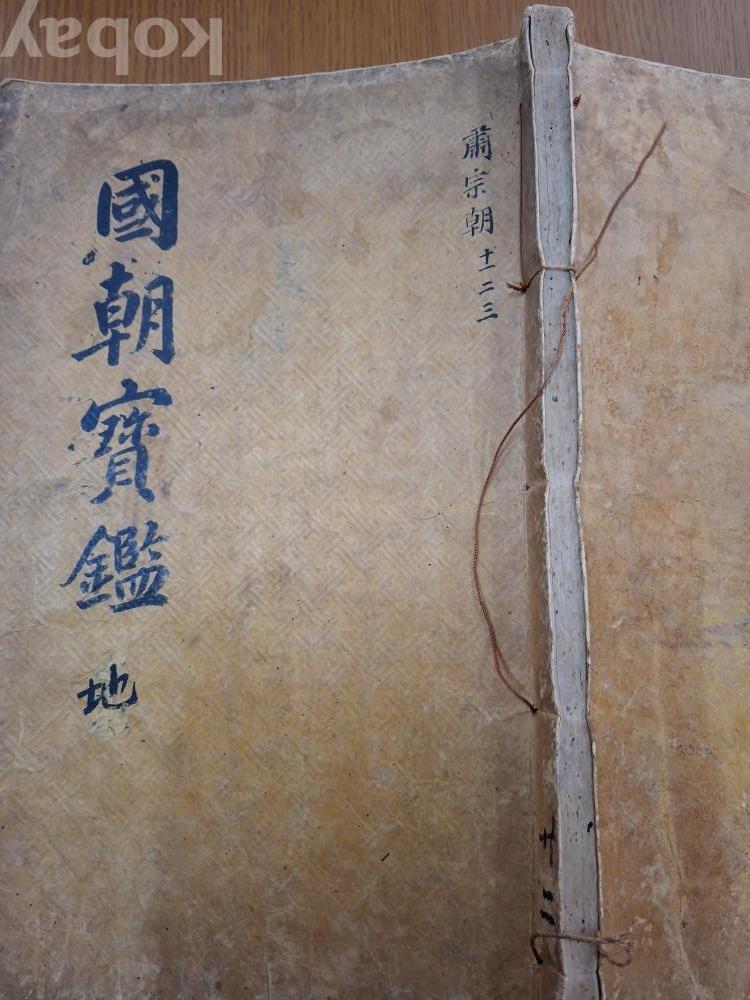 kobay
國朝寶鑑 地
肅宗朝 十一 二 三